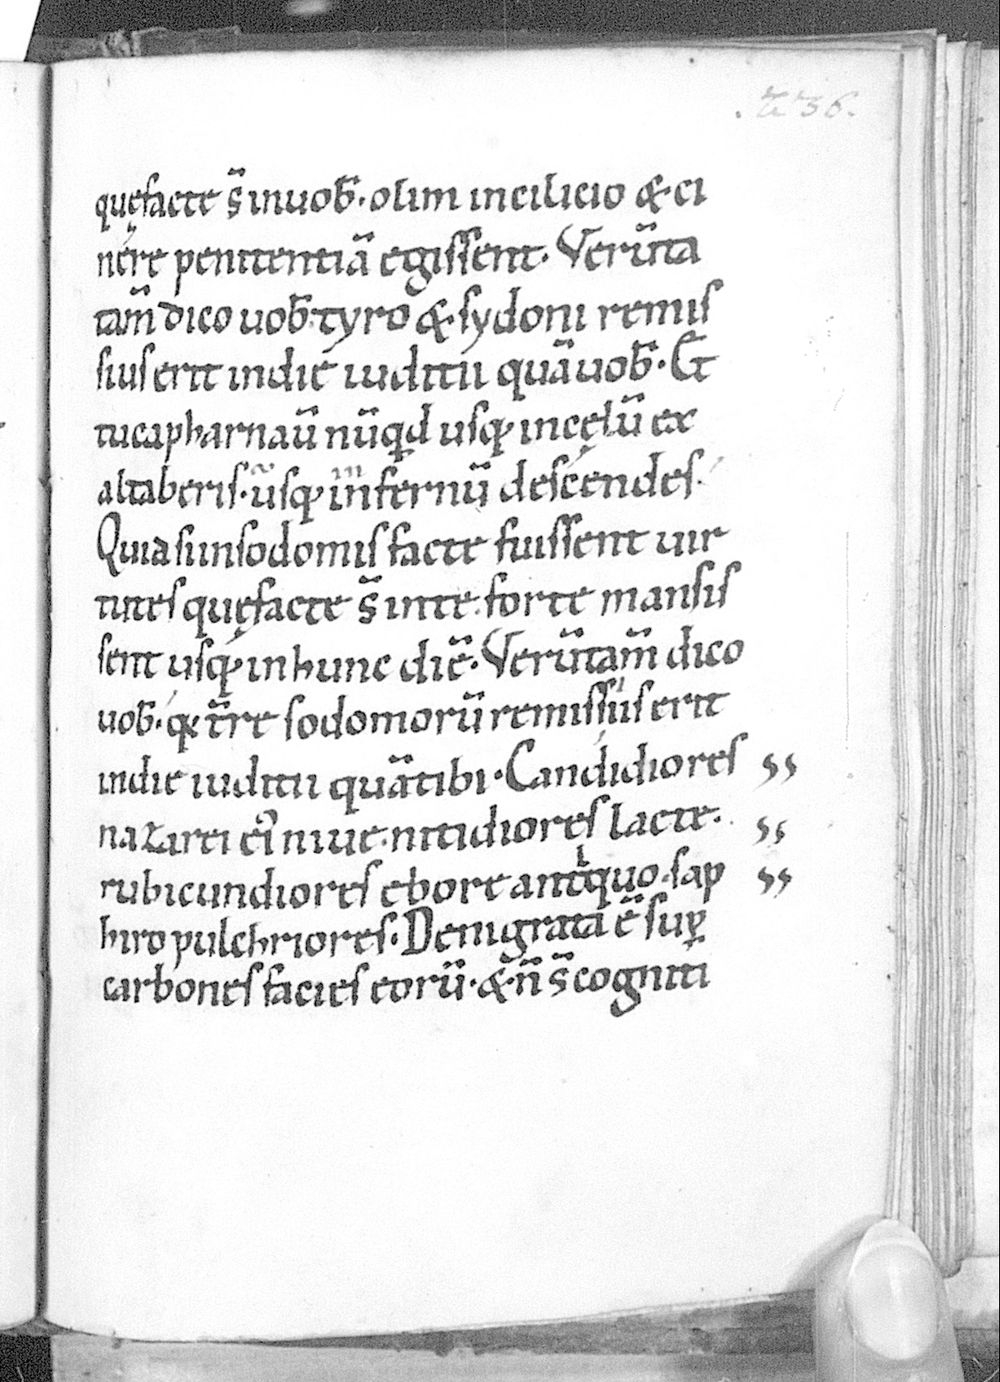 quęfacte s̄ inuob̄. olim incilicio & ci
nere penitentiā egissent. Verūta
tam̄ dico uob̄. tyro & sydoni remis
sius erit indie iuditii quā uob̄. Et
tu capharnaū nūqd usq; incęlū ex
altaberis. usq; in infernū descendes.
Quia si insodomis facte fuissent uir
tutes quęfacte s̄ inte. forte mansis
sent usq; in hunc diē. Verūtam̄ dico
uob̄. q; t̄re sodomorū remissius erit
indie iuditii quā tibi. Candidiores
nazarei ei niue. nitidiores lacte.
rubicundiores ebore antiquo. sap
hiro pulchriores. Denigrata ē sup
carbones facies eorū. & n̄ s̄ cogniti